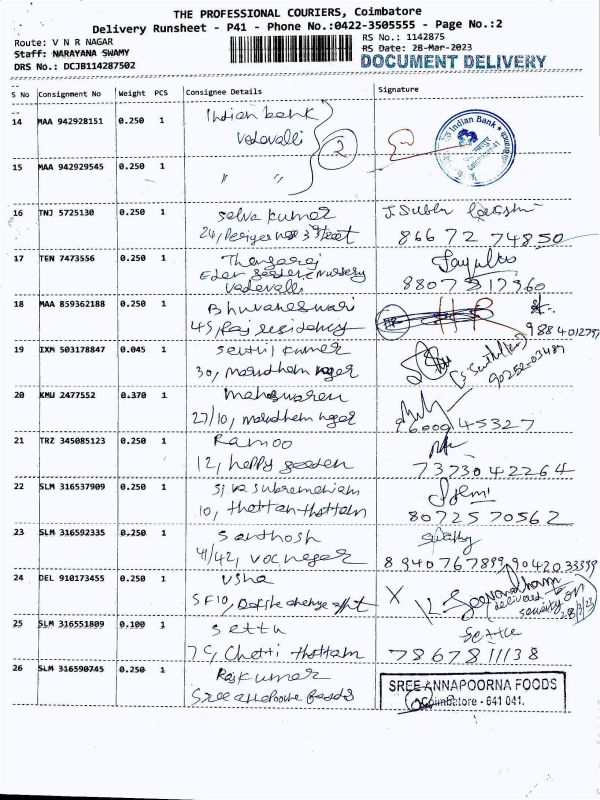 THE PROFESSIONAL COURIERS, Coimbatore
Delivery Runsheet - P41 - Phone No.:0422-3505555 - Page No.:2
Route: V N R NAGAR
RS No.: 1142875
Staff: NARAYANA SWAMY
RS Date: 28-Mar-2023
DRS No.: DCJB114287502
DOCUMENT DELIVERY
S No Consignment No Weight PCS Consignee Details Signature
14 MAA 942928151 0.250 1 Indian bank
Vadavalli
2
Indian Bank
15 MAA 942929545 0.250 1 " "
16 TNJ 5725130 0.250 1 Selva kumar
24, Periyar 3 street 86672 74850
17 TEN 7473556 0.250 1 Thangaraj
Eden garden nursery
Vadavalli 88078 17960
18 MAA 859362188 0.250 1 Bhuvaneswari HR
45, Raj residency 9884012797
19 IXM 503178847 0.045 1 Senthil kumar
30, marudham nagar 90252-03489
20 KMU 2477552 0.370 1 maheswaren
27/10, marudham nagar 96000 45327
21 TRZ 345085123 0.250 1 Ramoo
12, happy garden 7373042264
22 SLM 316537909 0.250 1 Siva subramaniam
10, thottam 80725 70562
23 SLM 316592335 0.250 1 Santhosh
41/42, voc nagar 8940767899, 9042033999
24 DEL 910173455 0.250 1 Usha
SF10, X K. Jeevanandham
delivered security on
28/3/23
25 SLM 316551809 0.100 1 Settu Settu
7C, Chetti thottam 7867811138
26 SLM 316590745 0.250 1 Rajkumar
Sree annapoorna foods
SREE ANNAPOORNA FOODS
Coimbatore - 641 041.